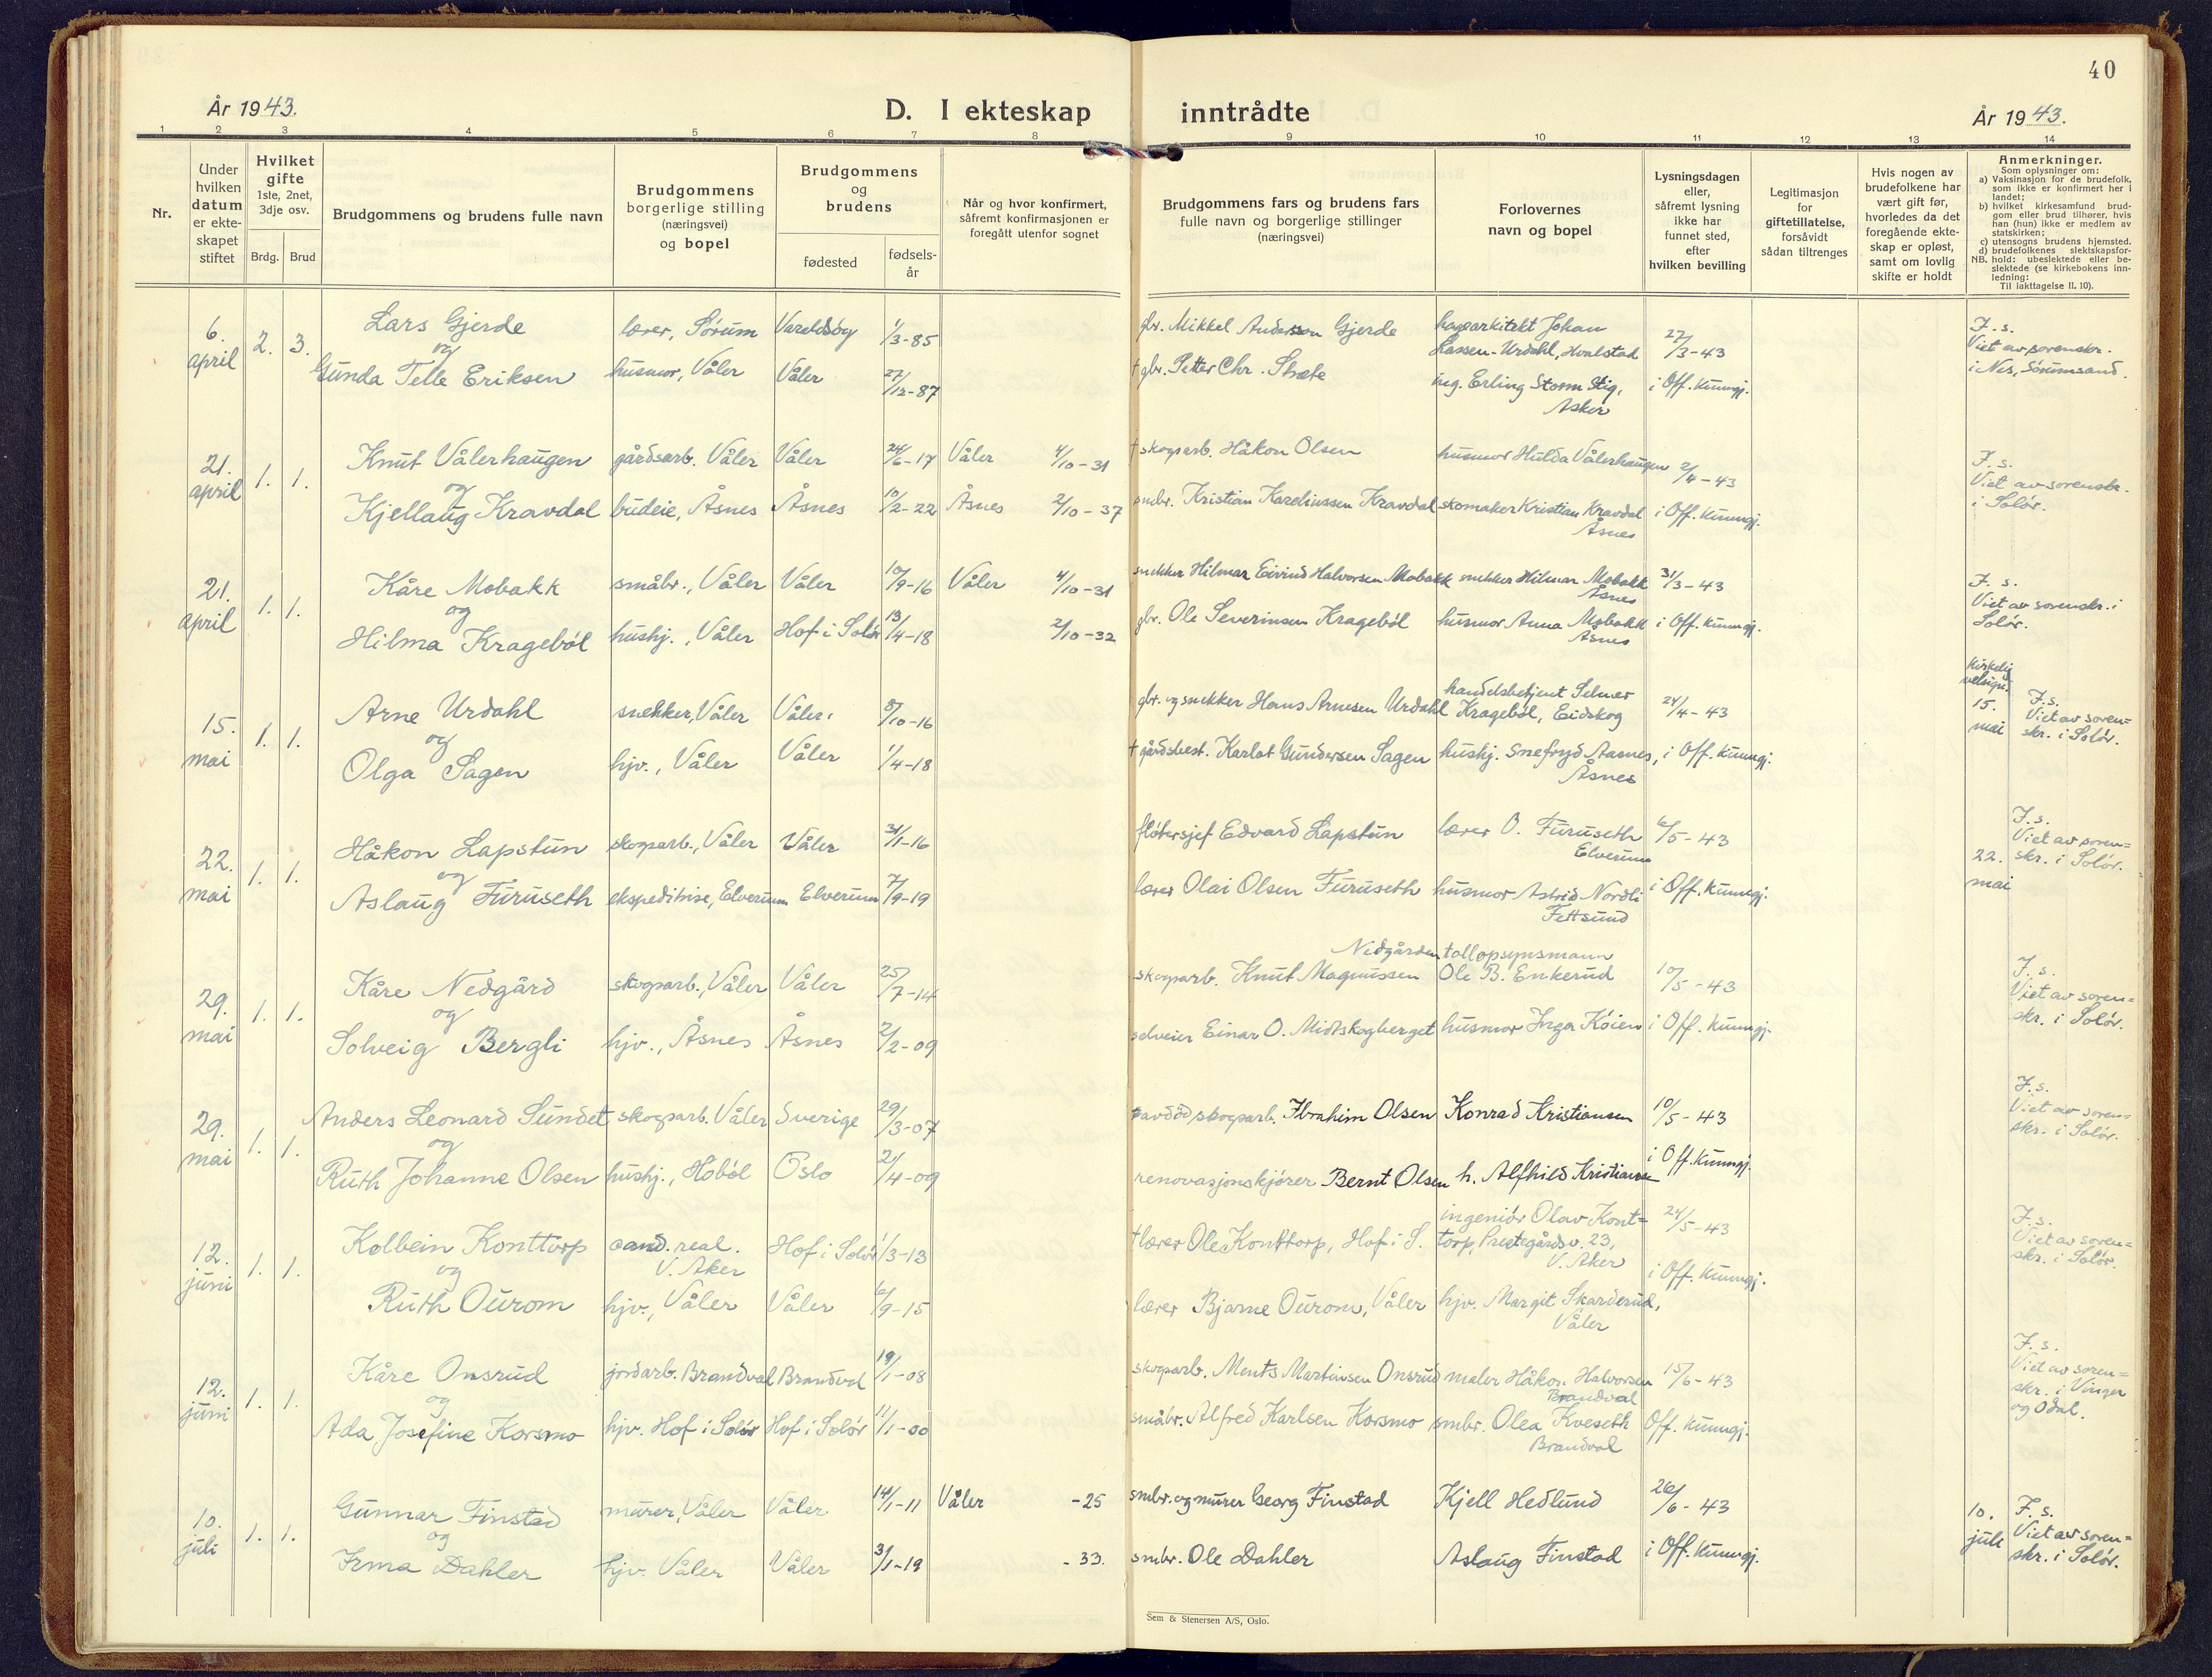 40
År 1943.
D. I ekteskap inntrådte
År 1943.
1 2 3 4 5 6 7 8 9 10 11 12 13 14
Nr.
Under hvilken datum er ekte-skapet stiftet
Hvilket gifte
1ste, 2net, 3dje osv.
Brdg. Brud
Brudgommens og brudens fulle navn
Brudgommens borgerlige stilling (næringsvei) og bopel
Brudgommens og brudens
fødested
fødsels-år
Når og hvor konfirmert, såfremt konfirmasjonen er foregått utenfor sognet
Brudgommens fars og brudens fars fulle navn og borgerlige stillinger (næringsvei)
Forlovernes navn og bopel
Lysningsdagen eller, såfremt lysning ikke har funnet sted, efter hvilken bevilling
Legitimasjon for giftetillatelse, forsåvidt sådan tiltrenges
Hvis nogen av brudefolkene har vært gift før, hvorledes da det foregående ekte-skap er opløst, samt om lovlig skifte er holdt
Anmerkninger.
Som oplysninger om:
a) Vaksinasjon for de brudefolk, som ikke er konfirmert her i landet;
b) hvilket kirkesamfund brud-gom eller brud tilhører, hvis han (hun) ikke er medlem av statskirken;
c) utensogns brudens hjemsted.
d) brudefolkenes slektskapsfor-
NB. hold: ubeslektede eller be-slektede (se kirkebokens inn-ledning:
Til iakttagelse II, 10).
6. april 2. 3. Lars Gjerde lærer, Sørum Varaldsøy 1/3-85 gbr. Mikkel Anderson Gjerde hagearkitekt Johan Lassen-Urdahl, Hvalstad 27/3-43 F. s. Viet av sorenskr. i Nes, Sørumsand.
og
Gunda Telle Eriksen husmor, Våler Våler 27/12-87 † gbr. Petter Chr. Stræte ing. Erling Storm Stig, Asker i Off. kunngj.
21. april 1. 1. Knut Vålerhaugen gårdsarb. Våler Våler 24/6-17 Våler 4/10-31 † skogsarb. Håkon Olsen husmor Hulda Vålerhaugen 2/4-43 F. s. Viet av sorenskr. i Solør.
og
Kjellaug Kravdal budeie, Åsnes Åsnes 10/2-22 Åsnes 2/10-37 smbr. Kristian Kareliussen Kravdal skomaker Kristian Kravdal Åsnes i Off. kunngj.
21. april 1. 1. Kåre Mobakk småbr., Våler Våler 10/9-16 Våler 4/10-31 snekker Hilmar Eivind Halvorsen Mobakk snekker Hilmar Mobakk Åsnes 31/3-43 F. s. Viet av sorenskr. i Solør.
og
Hilma Kragebøl hushj., Våler Hof i Solør 13/4-18 2/10-32 gbr. Ole Severinsen Kragebøl husmor Anna Mobakk Åsnes i Off. kunngj.
15. mai 1. 1. Arne Urdahl snekker, Våler Våler 8/10-16 gbr. og snekker Hans Arnesen Urdahl handelsbetjent Selmer Kragebøl, Eidskog 24/4-43 kirkelig velsign. 15. mai F. s. Viet av soren=skr. i Solør.
og
Olga Sagen hjv., Våler Våler 1/4-18 † gårdsbest. Karlot Gundersen Sagen hushj. Snefryd Aasnes, Åsnes i Off. kunngj.
22. mai 1. 1. Håkon Lapstun skogsarb., Våler Våler 31/1-16 fløtersjef Edvard Lapstun lærer O. Furuseth Elverum 6/5-43 22. mai F. s. Viet av soren=skr. i Solør.
og
Aslaug Furuseth ekspeditrise, Elverum Elverum 7/9-19 lærer Olai Olsen Furuseth husmor Astrid Nordli Fettsund i Off. kunngj.
29. mai 1. 1. Kåre Nedgård skogsarb., Våler Våler 25/7-14 skogsarb. Knut Magnussen Nedgården tallopsynsmann Ole B. Enkerud 10/5-43 F. s. Viet av soren=skr. i Solør.
og
Solveig Bergli hjv., Åsnes Åsnes 2/2-09 selveier Einar O. Midtskogberget husmor Inga Køien i Off. kunngj.
29. mai 1. 1. Anders Leonard Sundet skogsarb. Våler Sverige 29/3-07 avdød skogsarb. Ibrahim Olsen Konrad Kristiansen 10/5-43 F. s. Viet av soren=skr. i Solør.
og
Ruth Johanne Olsen hushj., Hobøl Oslo 21/4-09 renovasjonskjører Bernt Olsen h. Alfhild Kristiansen i Off. kunngj.
12. juni 1. 1. Kolbein Konttorp cand. real. V. Aker Hof i Solør 1/3-13 † lærer Ole Konttorp, Hof i S. ingeniør Olav Kont=torp, Prestegårdsv. 23, V. Aker 24/5-43 F. s. Viet av soren=skr. i Solør.
og
Ruth Ourom hjv., Våler Våler 6/9-15 lærer Bjarne Ourom, Våler hjv. Margit Skarderud, Våler i Off. kunngj.
12. juni 1. 1. Kåre Onsrud jordarb. Brandval Brandval 19/1-08 skogsarb. Ments Martinsen Onsrud maler Håkon Halvorsen Brandval 15/6-43 F. s. Viet av soren=skr. i Vinger og Odal.
og
Ada Josefine Korsmo hjv. Hof i Solør Hof i Solør 11/1-00 småbr. Alfred Karlsen Korsmo smbr. Olea Kveseth Brandval Off. kunngj.
10. juli 1. 1. Gunnar Finstad murer, Våler Våler 14/1-11 Våler -25 smbr. og murer Georg Finstad Kjell Hedlund 26/6-43 10. juli F. s. Viet av soren=skr. i Solør.
og
Irma Dahler hjv. Våler Våler 3/1-19 -33. smbr. Ole Dahler Aslaug Finstad i Off. kunngj.
Sem & Stenersen A/S, Oslo.